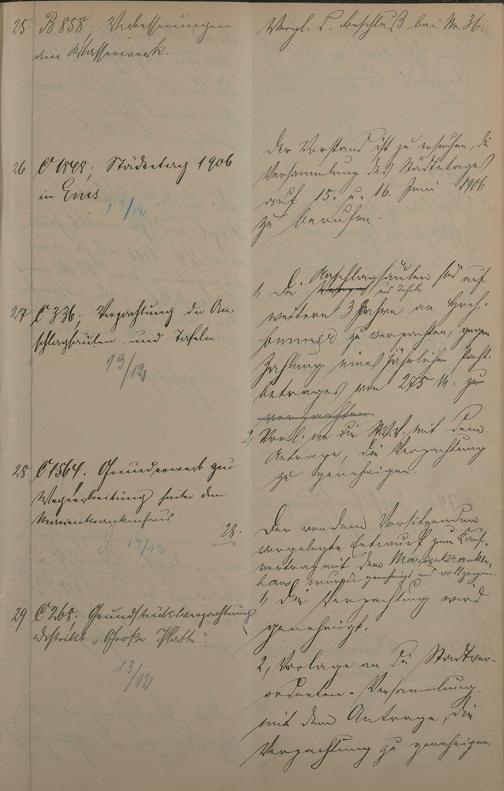 25 B 858. Verbesserungen
dem Wasserwerk.
Vergl. d. Beschluß bei Nr. 36.
26 C 1848; Städtetag 1906
in Ems
13/12
Der Vorstand ist zu ersuchen, die
Versammlung des Städtetages
auf 15. u. 16. Juni 1906
zu berufen.
27 C 336. Verpachtung der An-
schlagsäulen und Tafeln.
13/12
1, Die Anschlagsäulen sind auf
und Tafeln
weitere 3 Jahre an
zu verpachten, gegen
Zahlung eines jährlichen Pacht-
betrages von 275 M. zu
verpachten
2, Vorl. an die mit dem
Antrage, die Verpachtung
zu genehmigen.
28 C 1564. Grunderwerb zur
Wegverbreiterung hinter dem
Marienkrankenhaus
28.
13/12
Der von dem Vorsitzenden
vorgelegte Entwurf zum Kauf-
vertrag mit dem Marienkranken-
haus wurde genehmigt und vollzogen.
29 C 268. Grundstücksverpachtung
Distrikt "Große Platte".
13/12
1, Die Verpachtung wird
genehmigt.
2, Vorlage an die Stadtver-
ordneten-Versammlung
mit dem Antrage, die
Verpachtung zu genehmigen.